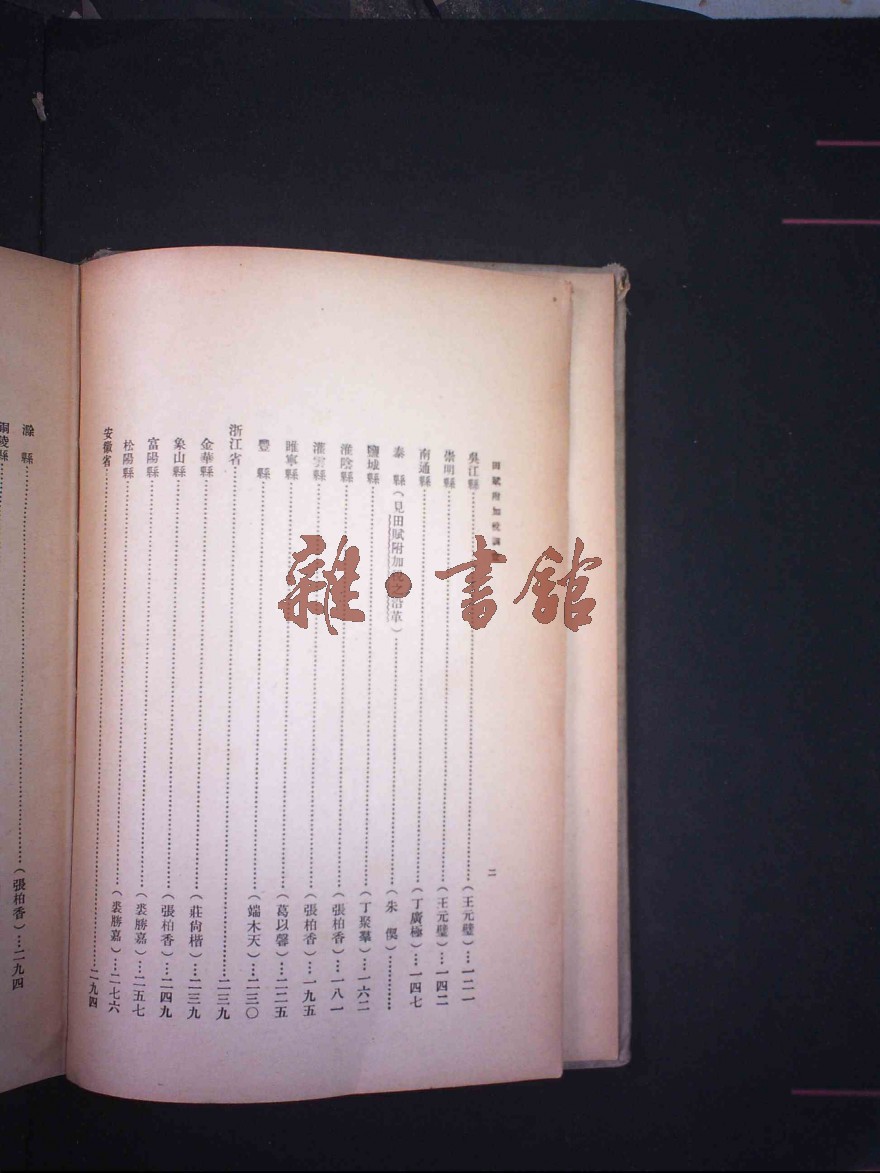 田賦附加稅調
二
吳江縣……(王元璧)…一二一
崇明縣……(王元璧)…一四二
南通縣……(丁廣極)…一四七
泰　縣(見田賦附加稅之沿革)……(朱　偰)……
鹽城縣……(丁聚羣)…一六二
淮陰縣……(張柏香)…一八一
灌雲縣……(張柏香)…一九五
睢寧縣……(葛以馨)…二二五
豐　縣……(端木天)…二三〇
浙江省……二三九
金華縣……(莊尙楷)…二三九
象山縣……(張柏香)…二四九
富陽縣……(裘勝嘉)…二五七
松陽縣……(裘勝嘉)…二七六
安徽省……二九四
滁　縣……(張柏香)…二九四
銅陵縣……
雜·書館